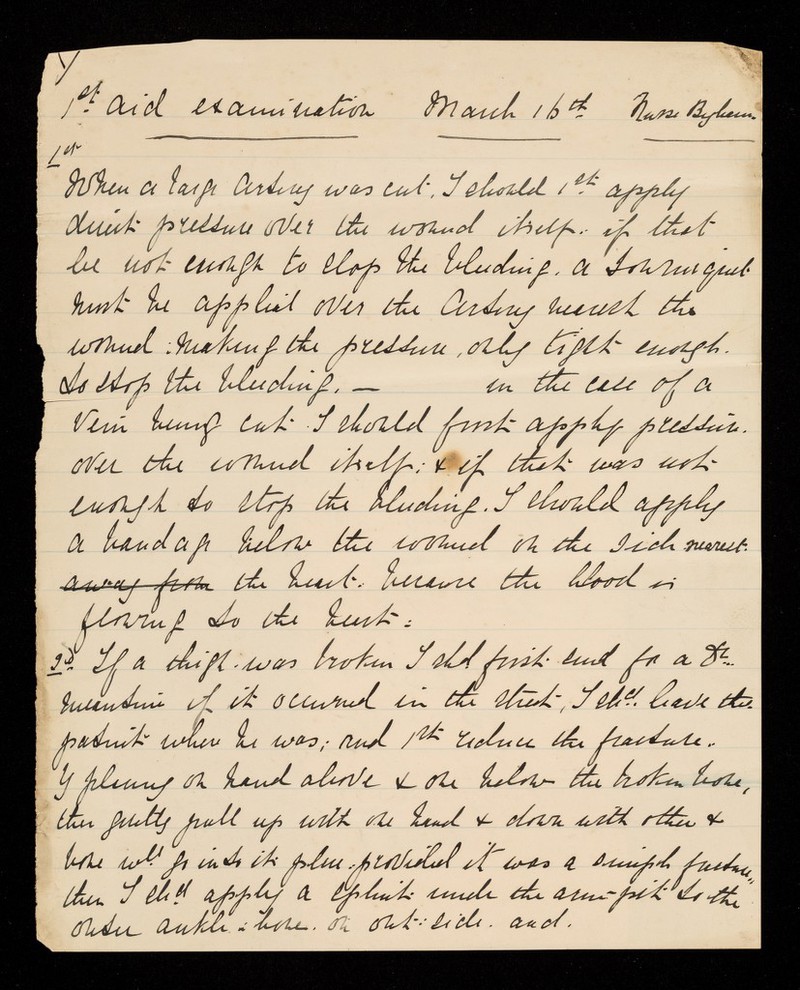 1st Aid examination March 16th Nurse
1st
When a large Artery was cut, I should 1st apply
direct pressure over the wound itself: if that
be not enough to stop the bleeding, a tourniquet
must be applied over the Artery nearest the
wound: making the pressure, only tight enough
to stop the bleeding. — in the case of a
Vein being cut I should first apply pressure
over the wound itself; & if that was not
enough to stop the bleeding. I should apply
a bandage below the wound on the side nearest
away from the heart: because the blood is
flowing to the heart:
If a thigh was broken I shd first send for a Dr.
meantime if it occurred in the street, I shd. leave the
patient where he was; and 1st reduce the fracture.
By placing on hand above & one below the broken bone,
then gently pull up with one hand & down with other &
bone wld go into its place. provided it was a simple fracture,
then I shd apply a splint under the arm-pit to the
outer ankle-bone. on out-side. and.